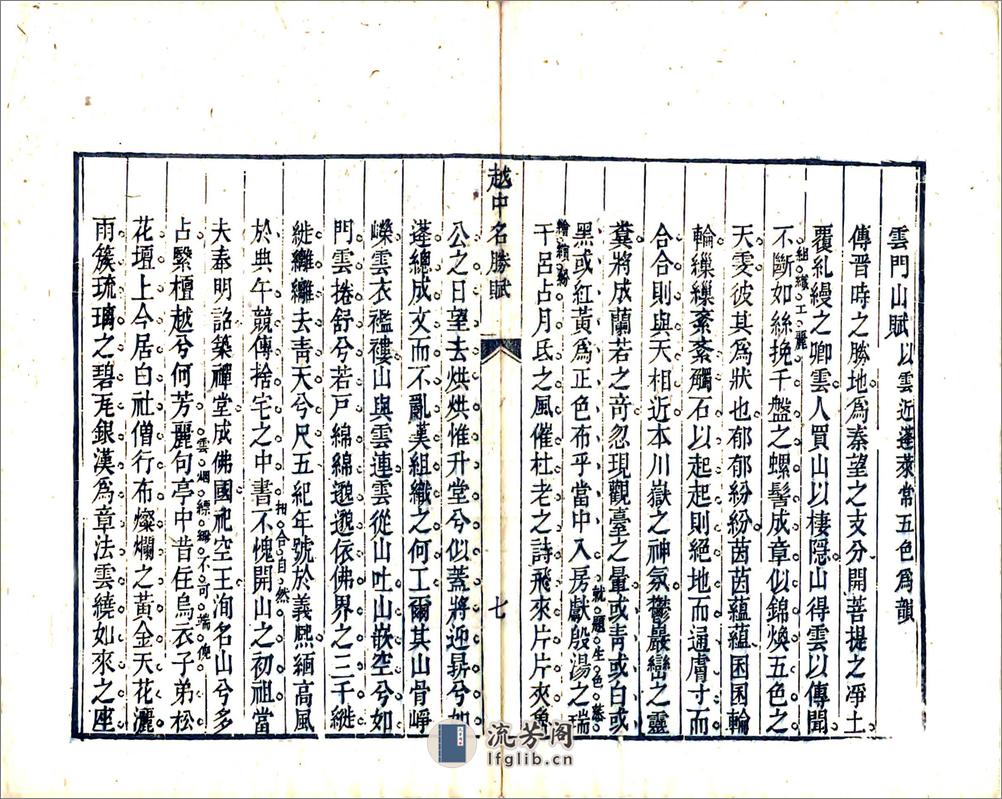 雲門山賦以雲近蓬萊常五色爲韻
傳晉時之勝地爲秦望之支分開菩提之凈土
覆糺縵之卿雲人買山以棲隱山得雲以傳聞
組織工麗
不斷如絲挽千盤之螺髻成章似錦煥五色之
天雯彼其爲狀也郁郁紛紛茵茵蘊蘊囷囷輪
輪纚纚紊紊觸石以起起則絕地而通膚寸而
合合則與天相近本川嶽之神氛鬱巖巒之靈
糞將成蘭若之奇忽現觀臺之暈或靑或白或
黑或紅黃爲正色布乎當中入房獻殷湯之瑞
就題生色
繪績紛
干呂占月氐之風催杜老之詩飛來片片夾
越中名勝賦
七
公之日望去烘烘惟升堂兮似蓋將迎曻兮如
蓬總成文而不亂漢組織之何工爾其山骨崢
嶸雲衣襤褸山與雲連雲從山吐山嵌空兮如
門雲捲舒兮若戸綿綿邈邈依佛界之三千縰
縰纚纚去靑天兮尺五紀年號於義熙緬高風
於典午競傳捨宅之中書不愧開山之初祖當
拍合自然
夫奉明詔築禪堂成佛國祀空王洵名山兮多
雲烟縹緲不可端倪
占繄檀越兮何芳麗句亭中昔住烏衣子弟松
花壇上今居白社僧行布燦爛之黃金天花灑
雨簇琉璃之碧瓦銀漢爲章法雲繞如來之座
流芳阁
lfglib.cn